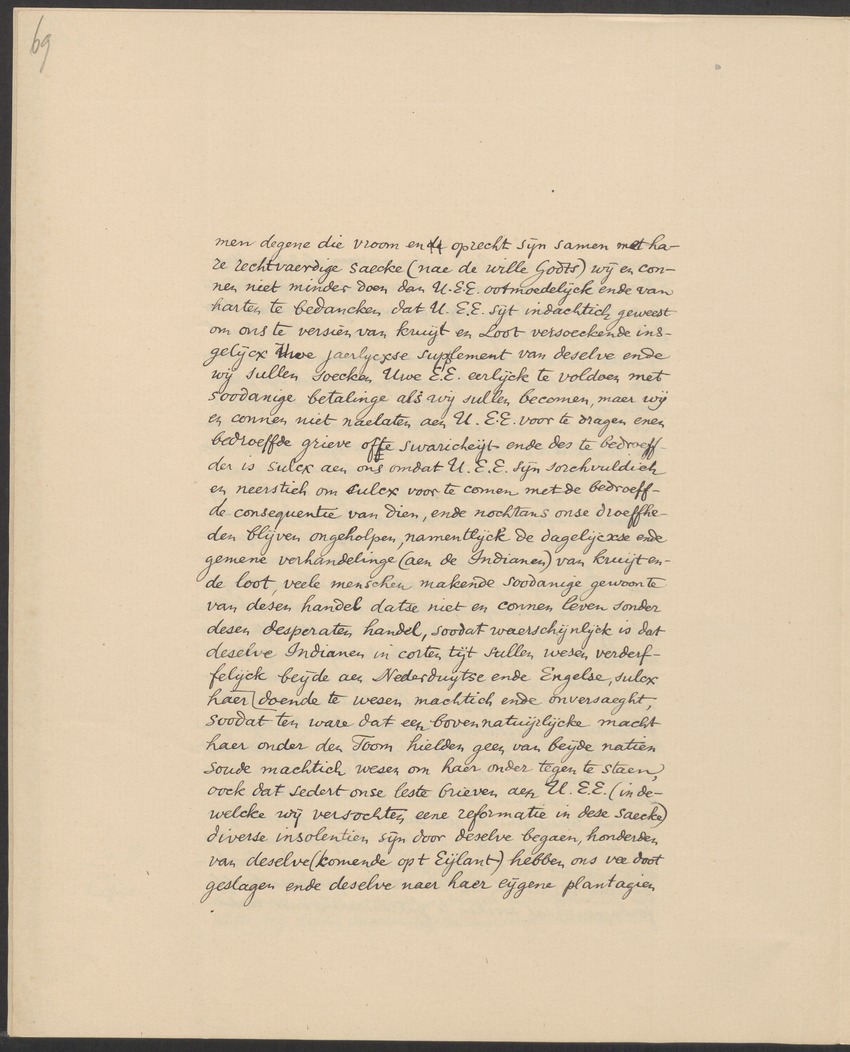 69
men degene die vroom ende oprecht sijn samen met ha-
re rechtvaerdige saecke (nae de wille Godts) wij en con-
nen niet minder doen dan U.E.E. ootmoedelijck ende van
harten te bedancken dat U.E.E. sijt indachtich geweest
om ons te versien van kruijt en Loot versoeckende ins-
gelijcx Uwe jaerlycxse supplement van deselve ende
wij sullen soecken Uwe E.E. eerlijck te voldoen met
soodanige betalinge als wij sullen becomen, maer wij
en connen niet naelaten aen U.E.E. voor te dragen enen
bedroeffde grieve offte swaricheijt ende des te bedroeff-
der is sulcx aen ons omdat U.E.E. sijn sorchvuldich
en neerstich om sulcx voor te comen met de bedroeff-
de consequentie van dien, ende nochtans onse droeffhe-
den blijven ongeholpen, namentlijck de dagelijcxse ende
gemene verhandelinge (aen de Indianen) van kruijt en-
de loot, veele menschen makende soodanige gewoonte
van desen handel datse niet en connen leven sonder
desen desperaten handel, soodat waerschijnlijck is dat
deselve Indianen in corten tijt sullen wesen verderf-
felijck beijde aen Nederduytse ende Engelse, sulcx
haer doende te wesen machtich ende onversaeght,
soodat ten ware dat een bovennatuijrlijcke macht
haer onder den Toom hielden geen van beijde natien
soude machtich wesen om haer onder tegen te staen,
oock dat sedert onse leste brieven aen U.E.E. (in de-
welcke wij versochten eene reformatie in dese saecke)
diverse insolentien sijn door deselve begaen, honderden
van deselve (komende op t Eijlant) hebben ons vee doot
geslagen ende deselve naer haer eijgene plantagien